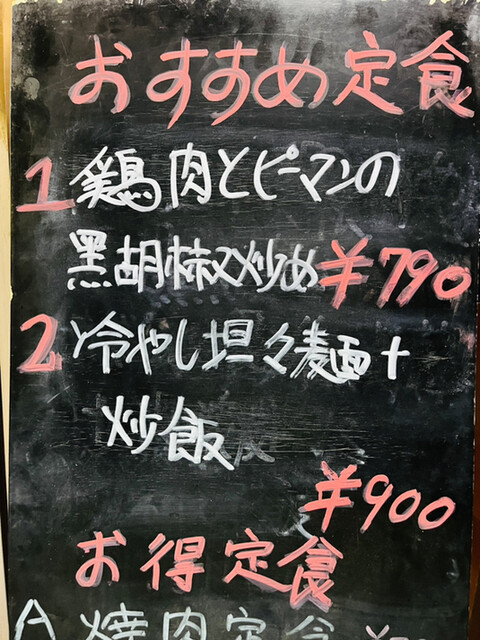 おすすめ定食
1 鶏肉とピーマンの
黒胡椒炒め ¥790
2 冷やし坦々麺+
炒飯
¥900
お得定食
A 焼肉定食 ¥